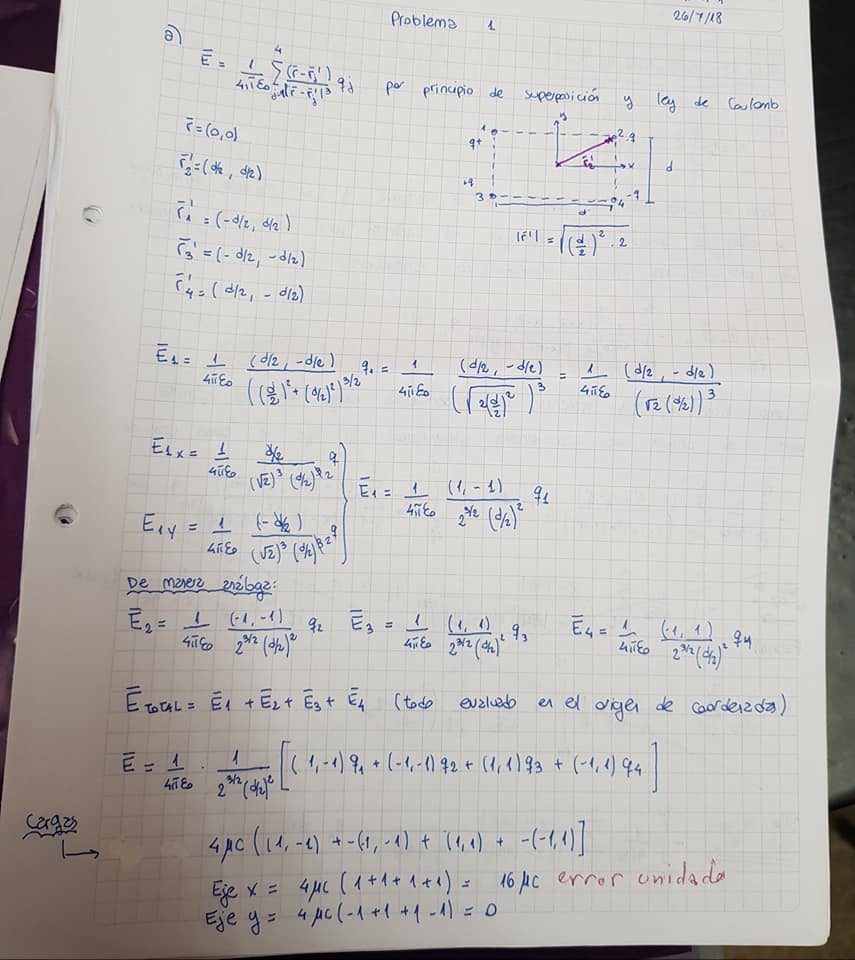 26/7/18
Problema 1
a)
Ē = 1/4πε₀ Σ⁴ⱼ₌₁ (r̄-r̄ⱼ')/|r̄-r̄ⱼ'|³ qⱼ por principio de superposición y ley de Coulomb
r̄ = (0,0)
r̄₂' = (d/2, d/2)
r̄₁' = (-d/2, d/2)
r̄₃' = (-d/2, -d/2)
r̄₄' = (d/2, -d/2)
y
1 q+
2 -q
r̄₂' x
d
+q 3
4 -q
d
|r̄'| = √((d/2)² · 2)
Ē₁ = 1/4πε₀ (d/2, -d/2)/((d/2)² + (d/2)²)^3/2 q₁ = 1/4πε₀ (d/2, -d/2)/(√(2(d/2)²))³ = 1/4πε₀ (d/2, -d/2)/(√2 (d/2))³
Ē₁x = 1/4πε₀ d/2/((√2)³ (d/2)^3 2) q
Ē₁ = 1/4πε₀ (1, -1)/(2^3/2 (d/2)²) q₁
Ē₁y = 1/4πε₀ (-d/2)/((√2)³ (d/2)^3 2) q
De manera análoga:
Ē₂ = 1/4πε₀ (-1, -1)/(2^3/2 (d/2)²) q₂ Ē₃ = 1/4πε₀ (1, 1)/(2^3/2 (d/2)²) q₃ Ē₄ = 1/4πε₀ (-1, 1)/(2^3/2 (d/2)²) q₄
Ē TOTAL = Ē₁ + Ē₂ + Ē₃ + Ē₄ (todo evaluado en el origen de coordenadas)
Ē = 1/4πε₀ · 1/(2^3/2 (d/2)²) [(1,-1) q₁ + (-1,-1) q₂ + (1,1) q₃ + (-1,1) q₄]
Cargas
4μC ((1,-1) + -(-1,-1) + (1,1) + -(-1,1)]
Eje x = 4μC (1+1+1+1) = 16μC error unidade
Eje y = 4μC (-1+1+1-1) = 0